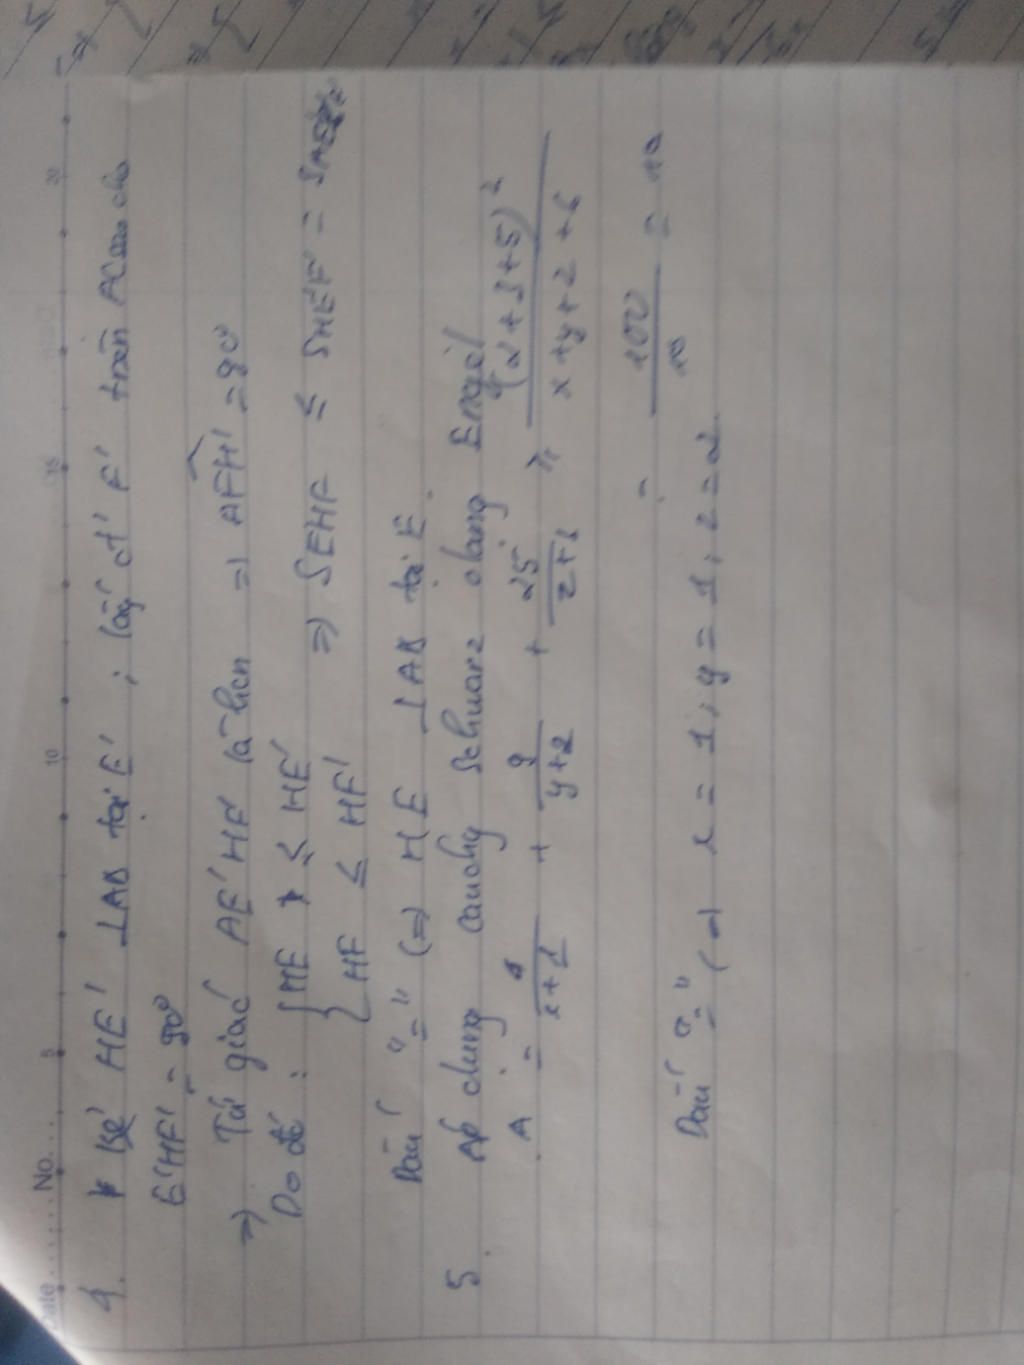 Date No. 5 10 15 20
4. Kẻ HE' ⊥AB tại E' ; lấy F' trên AC cho
E'HF' = 90°
=) Tứ giác AE'HF' là hcn =) AF'H = 90°
Do đó : { HE ≤ HE'
HF ≤ HF' =) SEHF ≤ SHE'F' =
Dấu "=" (=) HE ⊥AB tại E
5 Áp dụng Cauchy Schwarz dạng Engel
A = 4/(x+1) + 9/(y+2) + 25/(z+3) ≥ (2+3+5)²/(x+y+z+6)
= 100/10 = 10
Dấu "=" (=) x = 1, y = 1, z = 2